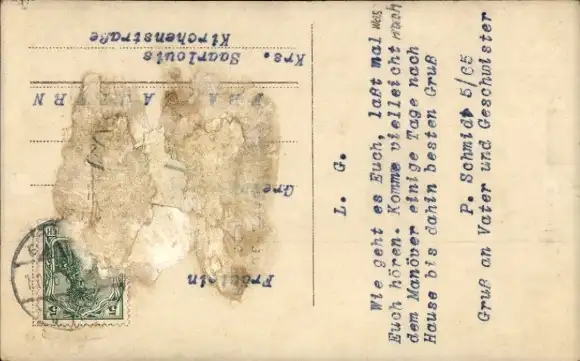 L. G.
Wie geht es Euch, laßt mal was
Euch hören. Komme vielleicht nach
dem Manöver einige Tage nach
Hause bis dahin besten Gruß
P. Schmidt 5/65
Gruß an Vater und Geschwister
Fräulein
Krs. Saarlouis
Kirchenstraße
5
5